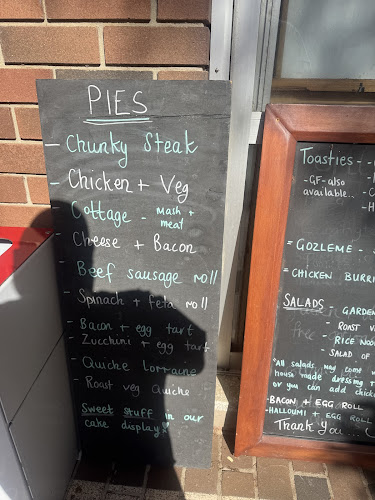 PIES
- Chunky Steak
- Chicken + Veg
Cottage - mash + meat
Cheese + Bacon
- Beef sausage roll
- Spinach + feta roll
- Bacon + egg tart
- Zucchini + egg tart
- Quiche Lorraine
- Roast veg Quiche
Sweet stuff in our
cake display!!
Toasties -
-GF-also
available..
= GOZLEME -
= CHICKEN BURRI
SALADS - GARDEN
- ROAST
- RICE
- SALAD OF
*All salads may come
house made dressing
or you can add
-BACON + EGG ROLL
-HALLOUMI + EGG ROLL
Thank You